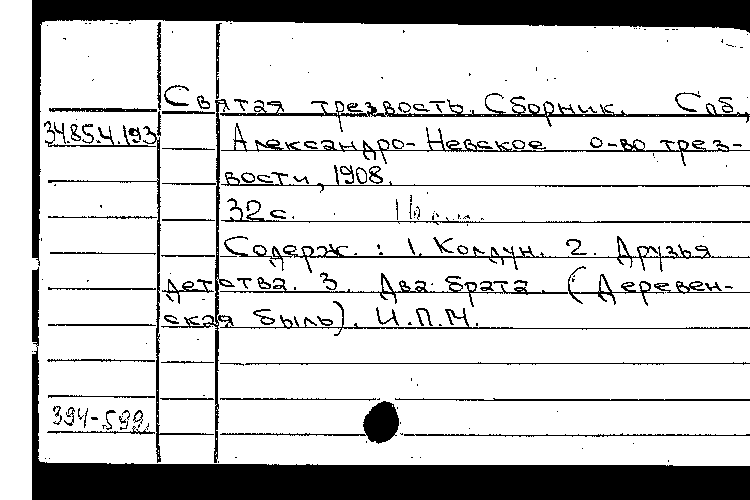 Святая трезвость. Сборник. Спб.,
34.85.4.193
Александро-Невское о-во трез-
вости, 1908.
32 с. 16 см.
Содерж.: 1. Колдун. 2. Друзья
детства. 3. Два брата. (Деревен-
ская быль). И.П.М.
394-592.